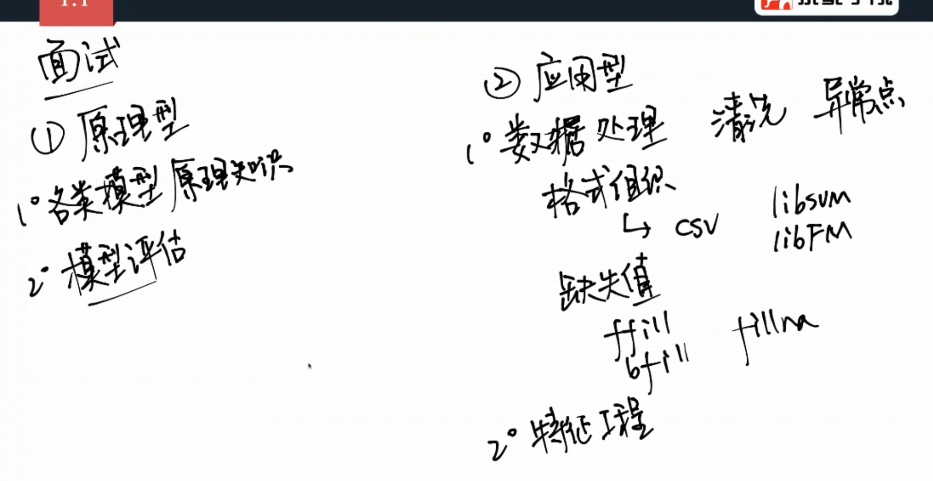 1.1
面试
① 原理型
1° 各类模型原理知识
2° 模型评估
② 应用型
1° 数据处理 清洗 异常点
格式组织
↳ csv libsvm
libFM
缺失值
ffill fillna
bfill
2° 特征工程